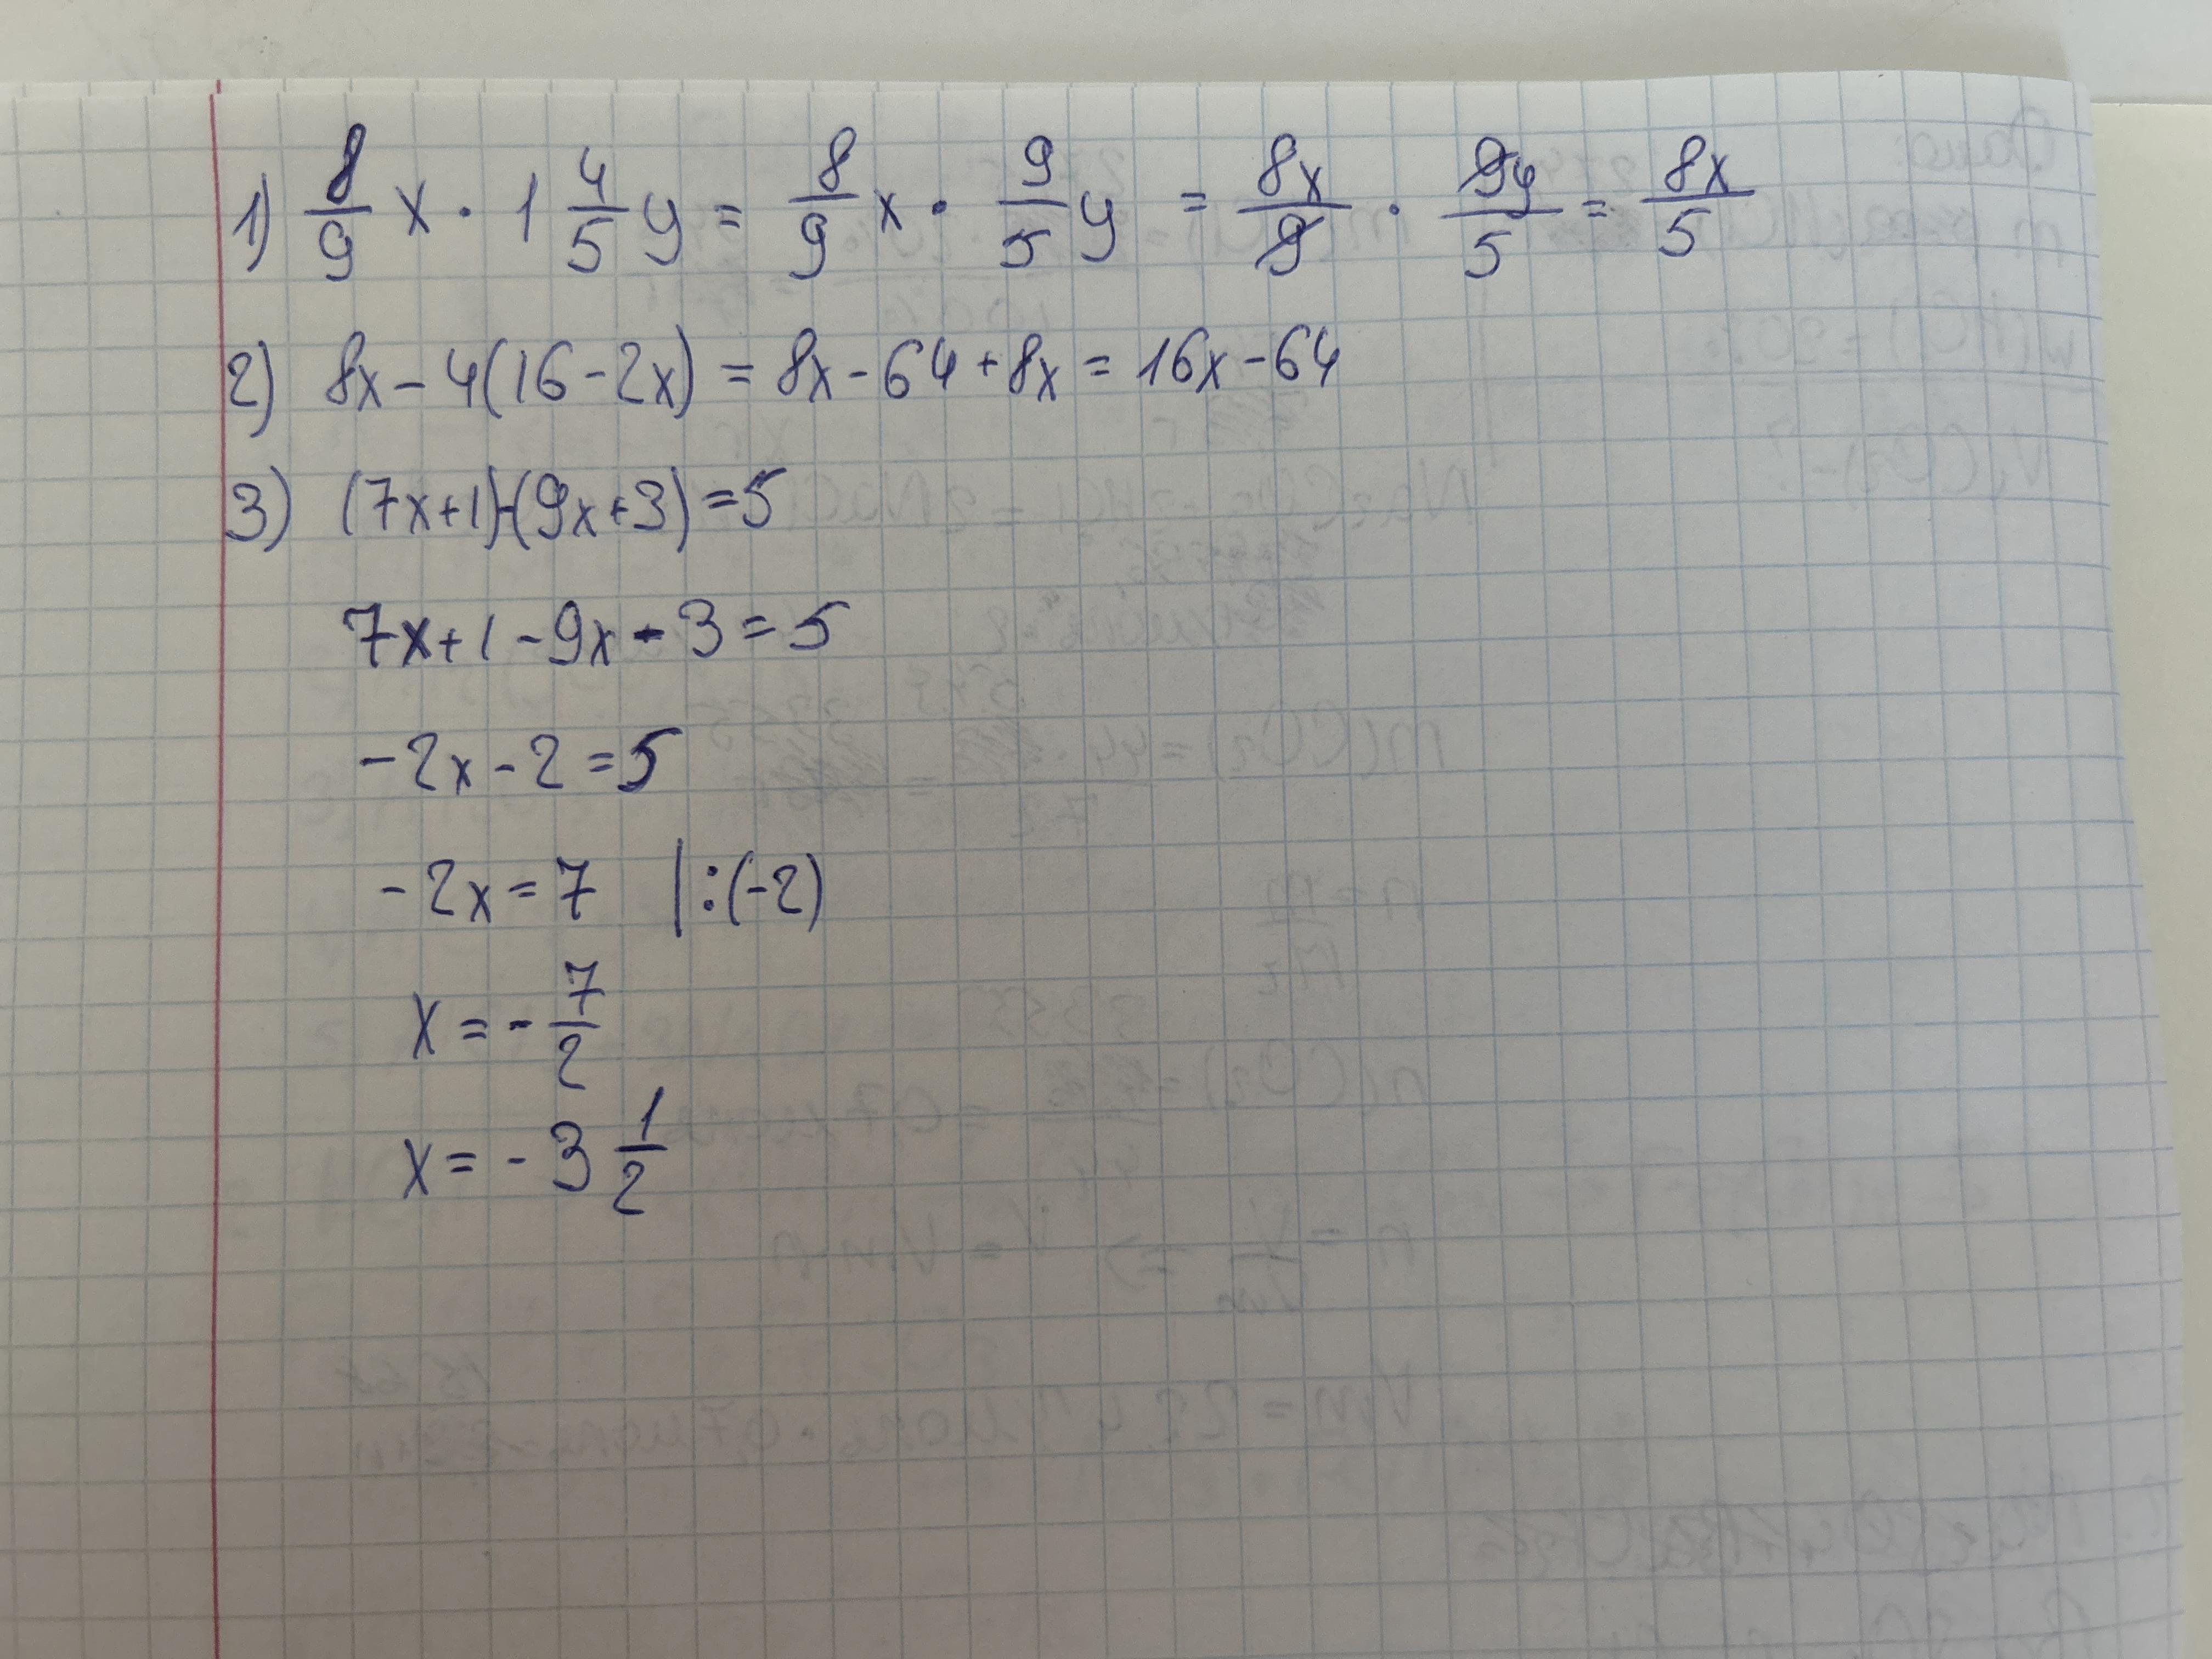 1) 8/9 x · 1 4/5 y = 8/9 x · 9/5 y = 8x/9 · 9y/5 = 8x/5
2) 8x - 4(16 - 2x) = 8x - 64 + 8x = 16x - 64
3) (7x+1)-(9x+3) = 5
7x + 1 - 9x - 3 = 5
-2x - 2 = 5
-2x = 7 | :(-2)
x = - 7/2
x = - 3 1/2